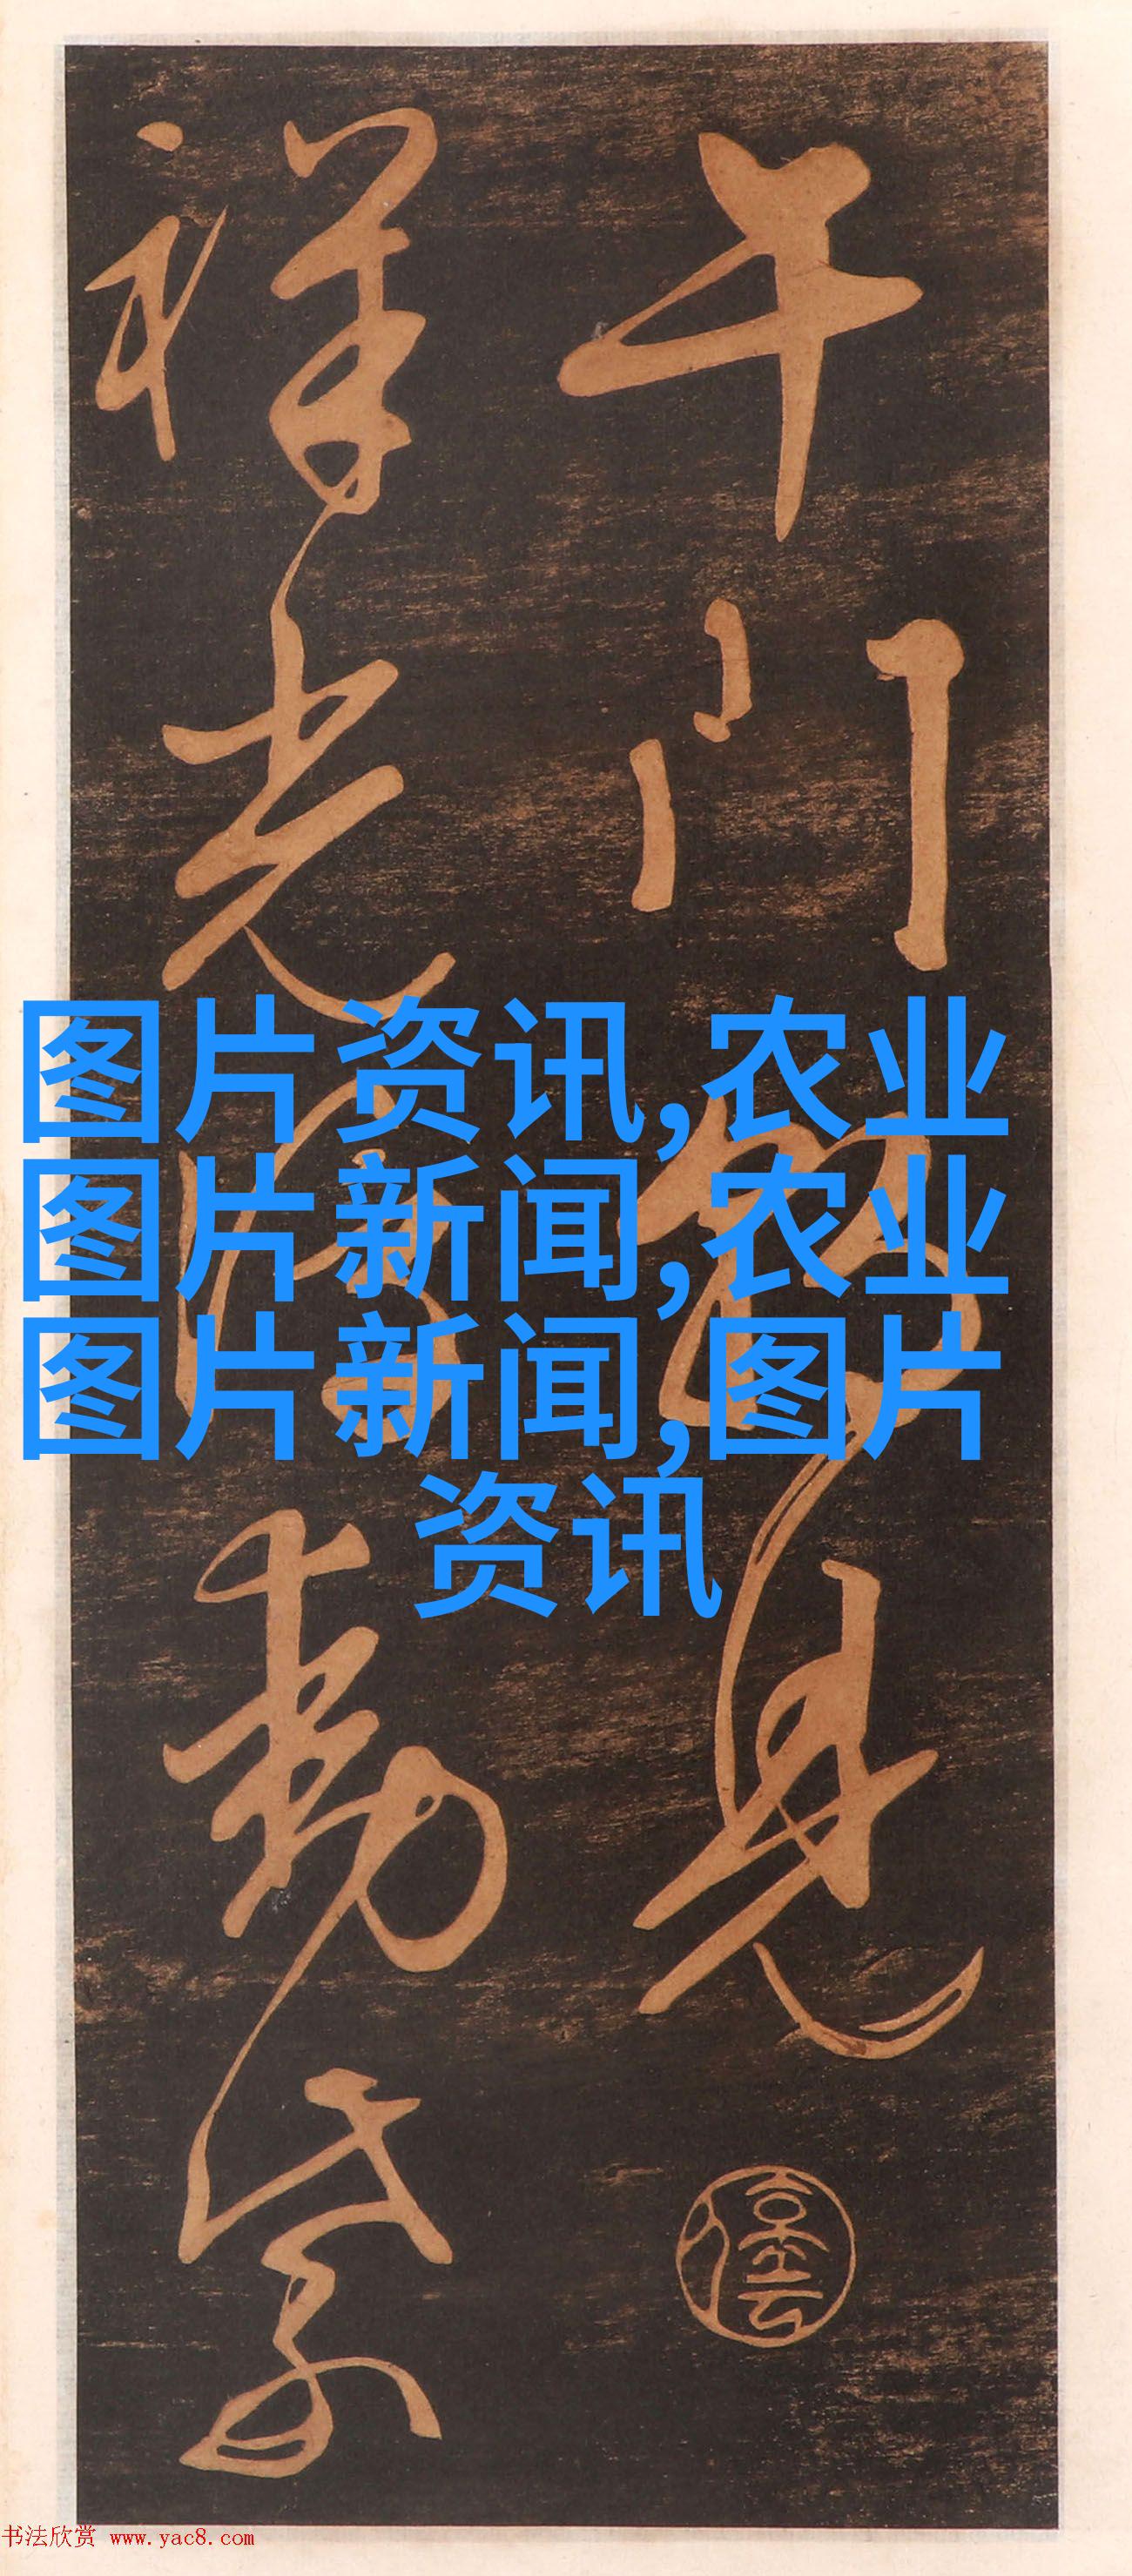 午门初见
祥光
动紫
图片资讯,农业
图片新闻,农业
图片新闻,图片
资讯
书法欣赏 www.yac8.com